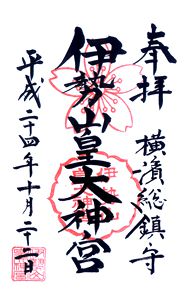 奉拝
横濱総鎮守
伊勢山皇大神宮
平成二十四年十月二十二日